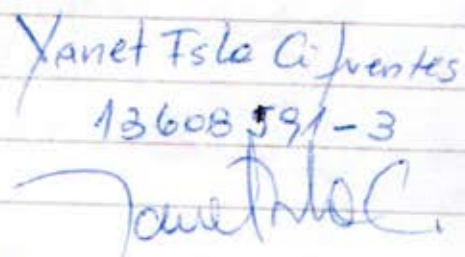 Yanet Isla Cifuentes
13608591-3
Yanet Isla C.